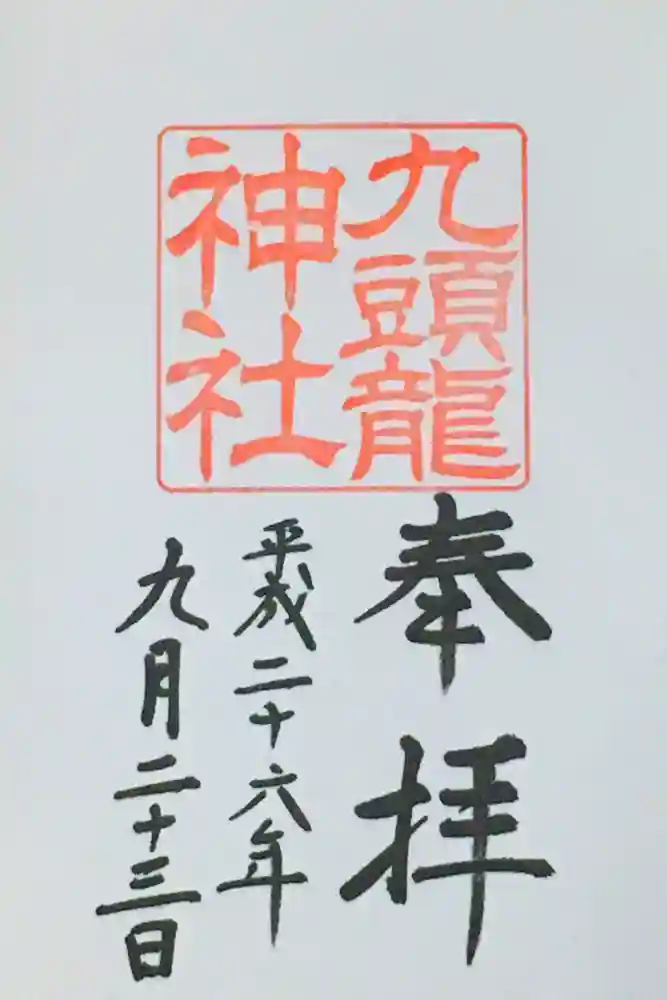 九頭龍
神社
奉拝
平成二十六年
九月二十三日